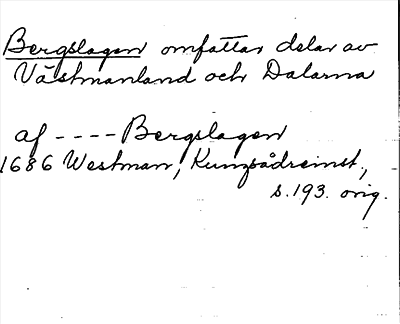 Bergslagen omfattar delar av
Västmanland och Dalarna
af ---- Bergslagen
1686 Westman, Kungsådreinst.,
s. 193. orig.